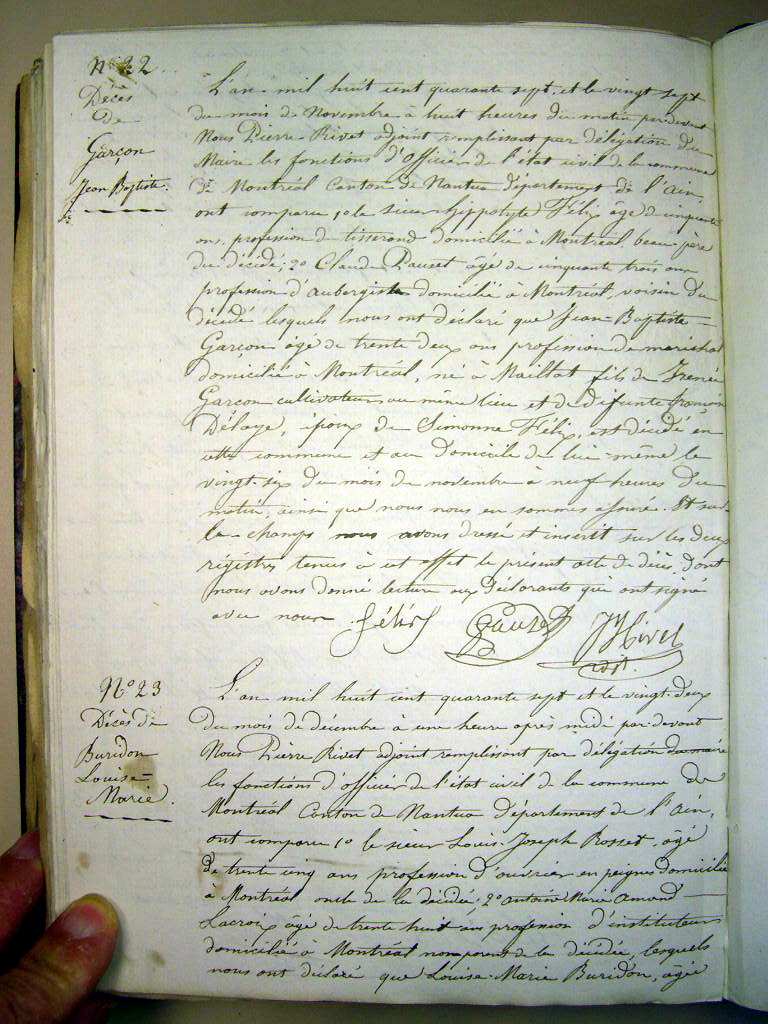 N° 22
Décès
de
Garçon
Jean Baptiste.
L'an mil huit cent quarante sept, et le vingt sept
du mois de Novembre à huit heures du matin par devant
Nous Pierre Rivet adjoint remplissant par délégation du
Maire les fonctions d'officier de l'état civil de la commune
de Montréal Canton de Nantua Département de l'Ain,
ont comparu 1° le sieur hippolyte Félix âgé de cinquante
ans, profession de tisserand domicilié à Montréal, beau-père
du décédé; 2° Claude âgé de cinquante trois ans
profession d'aubergiste domicilié à Montréal, voisin du
décédé lesquels nous ont déclaré que Jean-Baptiste
Garçon âgé de trente deux ans profession de maréchal
domicilié à Montréal, né à Maillat fils de Irenée
Garçon cultivateur au même lieu et de défunte
Délaye, époux de Simonne Félix, est décédé en
cette commune et au domicile de lui-même le
vingt-six du mois de novembre à neuf heures du
matin, ainsi que nous nous en sommes assuré. Et sur
le-champs nous avons dressé et inscrit sur les deux
régistres tenus à cet effet le présent acte de décès, dont
nous avons donné lecture aux déclarants qui ont signé
avec nous. Félix Rivet
adjt.
N° 23
Décès de
Buridon
Louise-
Marie.
L'an mil huit cent quarante sept et le vingt-deux
du mois de décembre à une heure après midi par-devant
Nous Pierre Rivet adjoint remplissant par délégation du maire
les fonctions d'officier de l'état civil de la commune de
Montréal Canton de Nantua Département de l'Ain,
ont comparu 1° le sieur Louis-Joseph Rosset, âgé
de trente cinq ans profession d'ouvrier en peignes domicilié
à Montréal oncle de la décédée; 2° Antoine Marie Amand
Lacroix âgé de trente huit ans profession d'instituteur
domicilié à Montréal non parent de la décédée, lesquels
nous ont déclaré que Louise-Marie Buridon, âgée